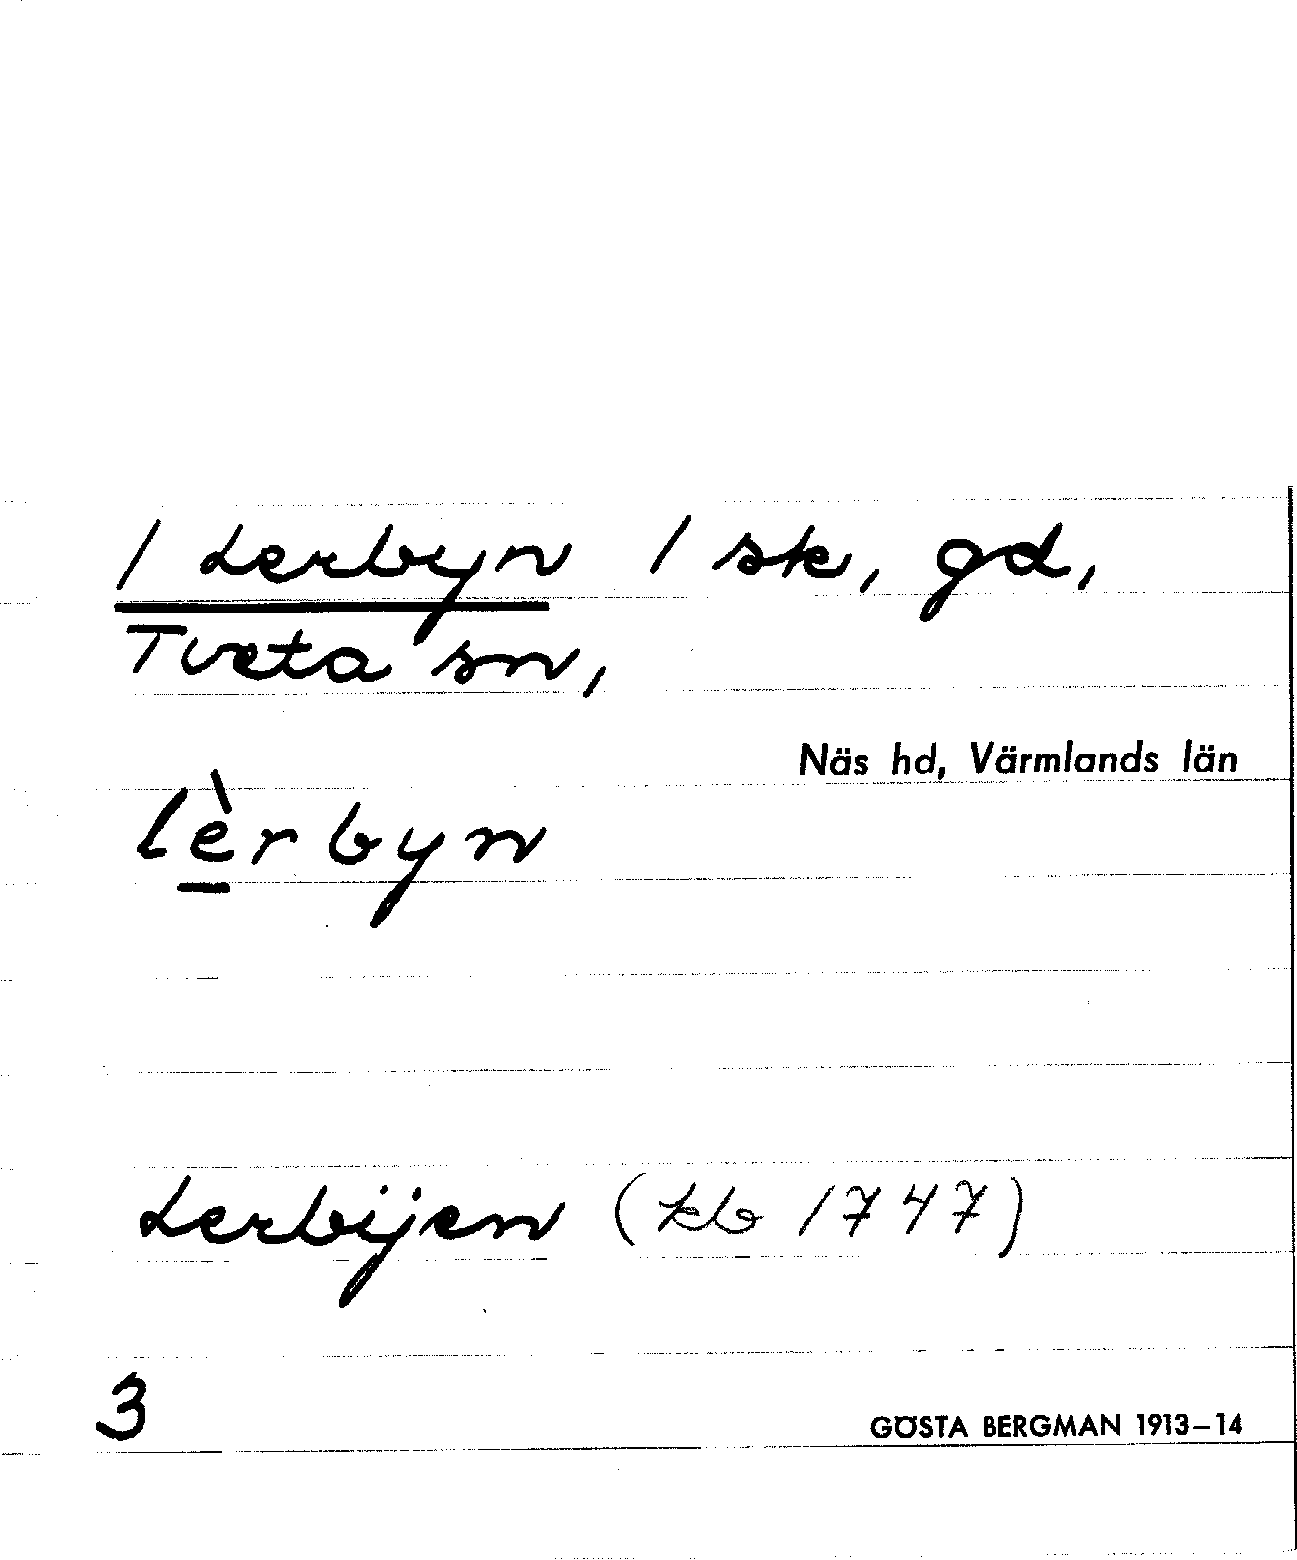 / Lerbyn / sk, gd,
Tveta sn,
Näs hd, Värmlands län
lèrbyn
Lerbijen (kb 1747)
3
GÖSTA BERGMAN 1913–14